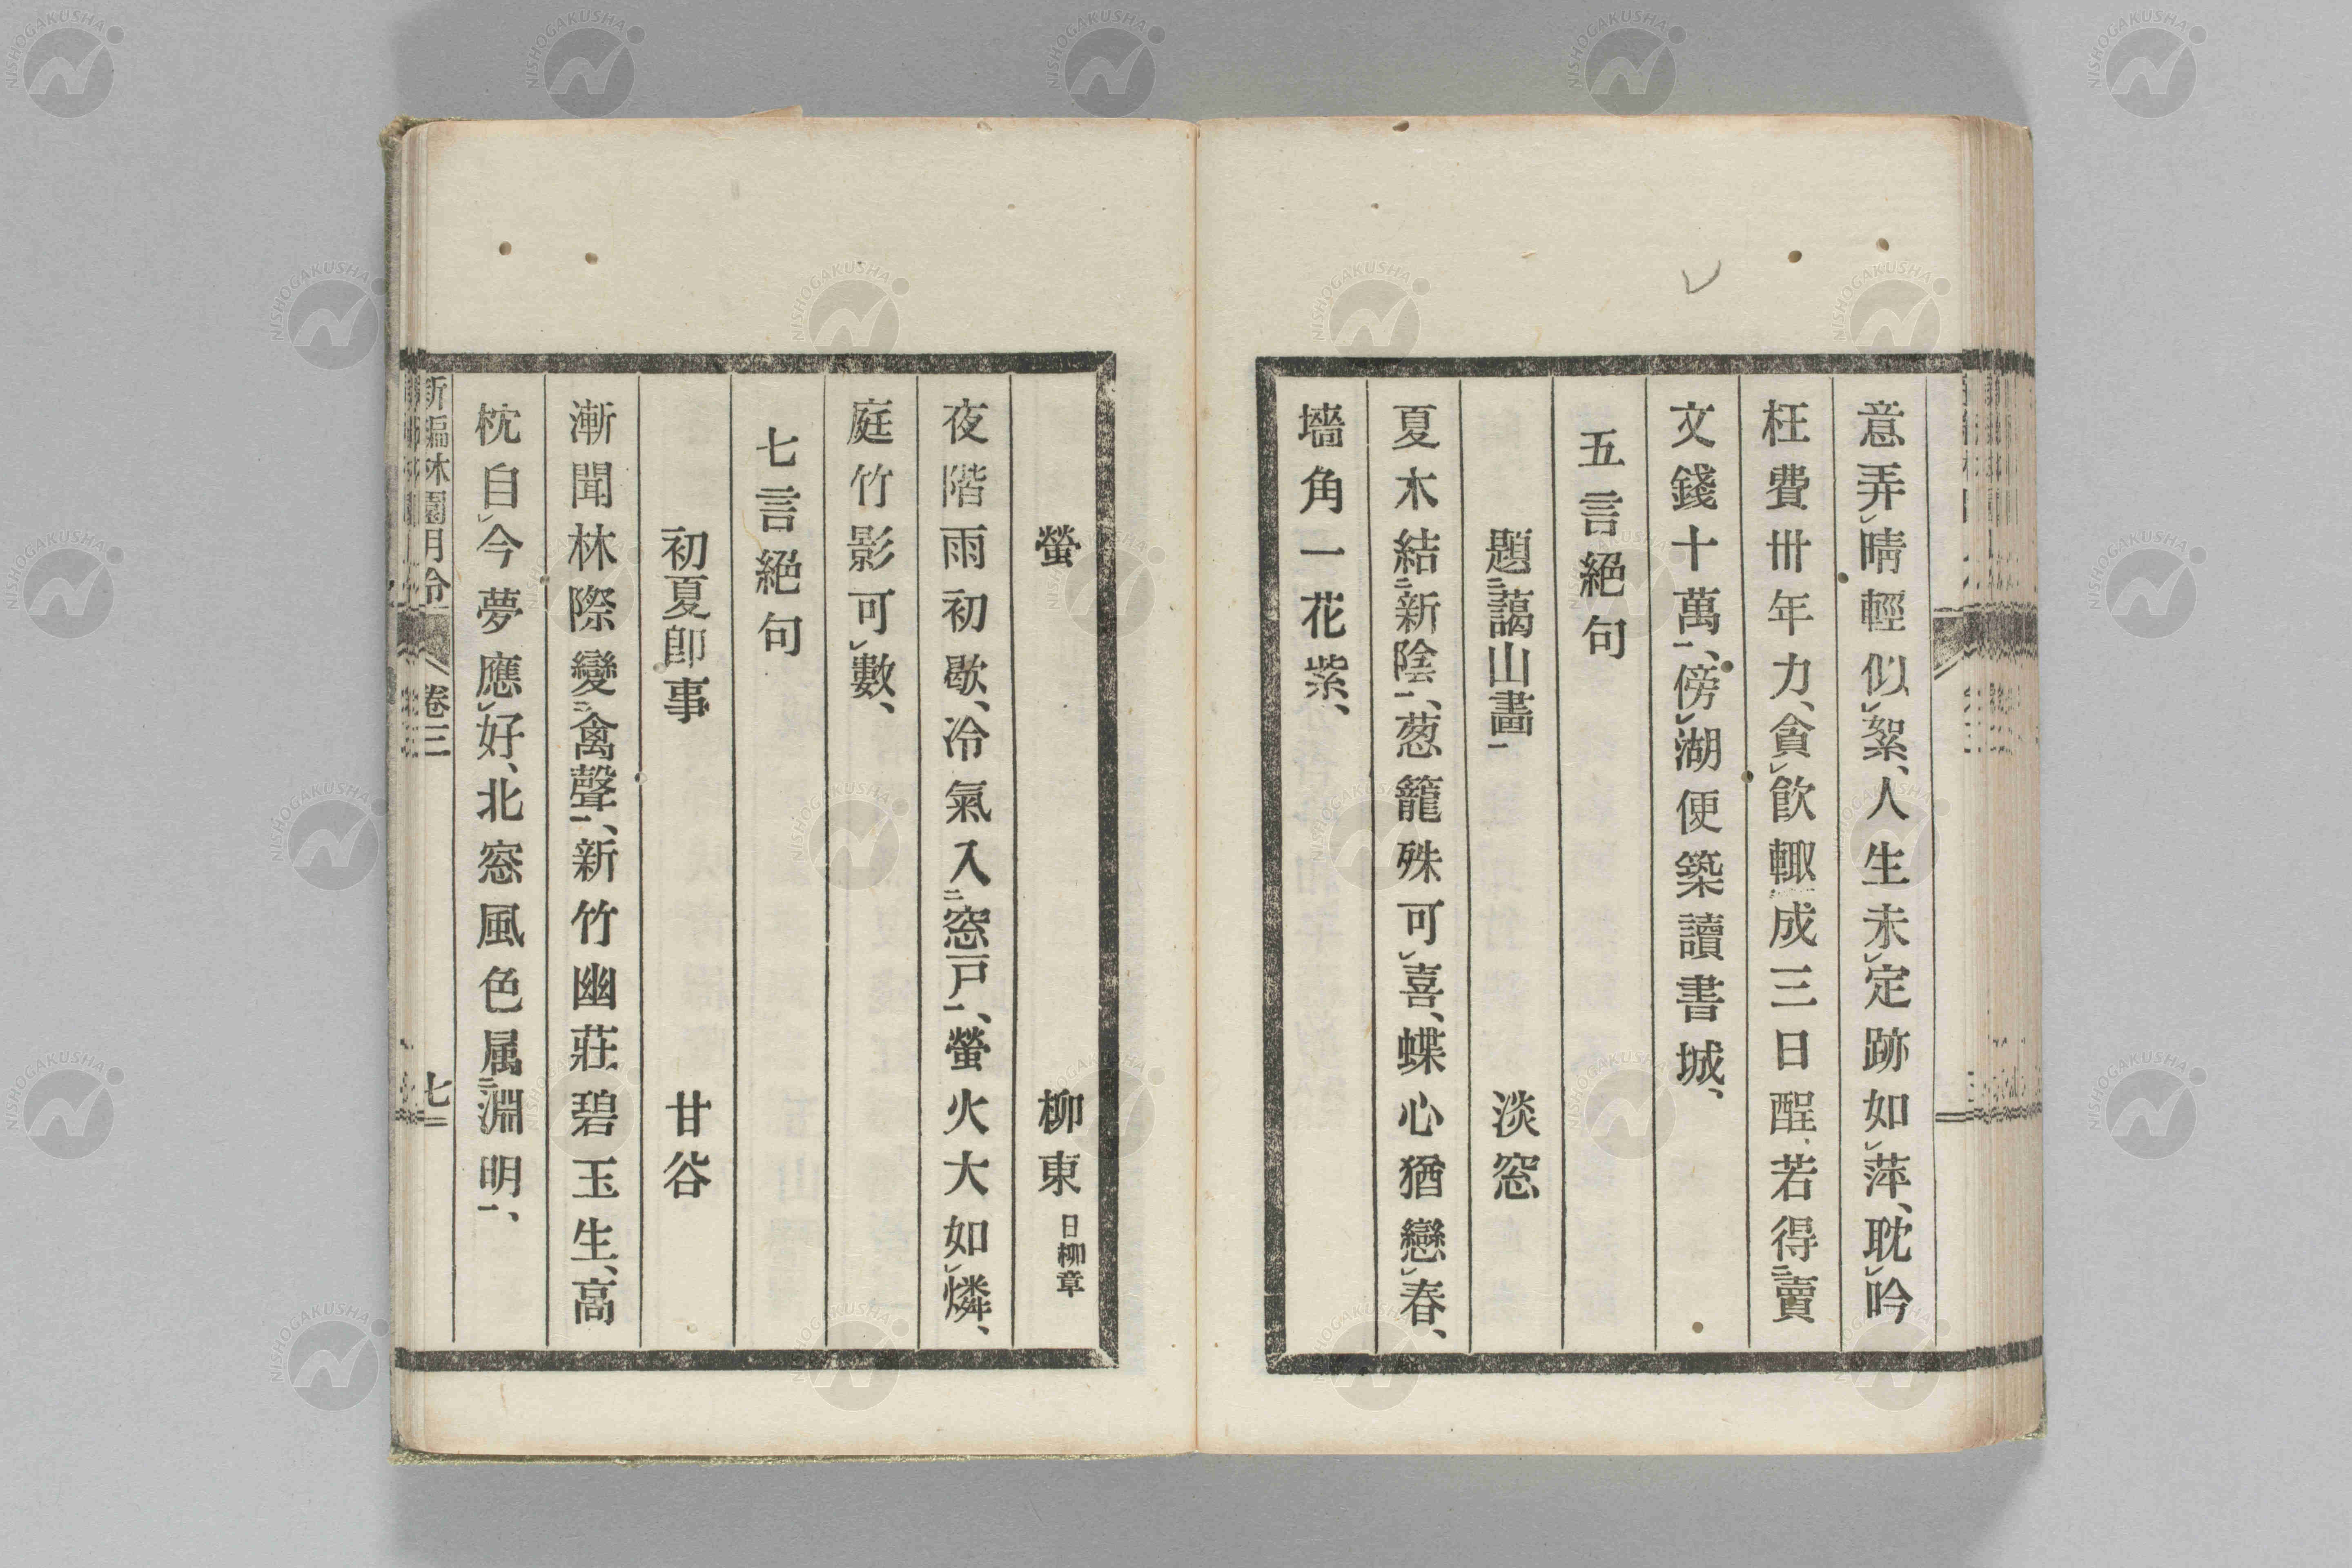 意弄㆑晴輕似㆑絮、人生未㆑定跡如㆑萍、耽㆑吟
枉費卅年力、貪㆑飮輙成三日酲、若得㆓賣
文錢十萬㆒、傍㆑湖便築讀書城、
五言絕句
題㆓藹山畵㆒　淡窓
夏木結㆓新陰㆒、葱籠殊可㆑喜、蝶心猶戀㆑春、
墻角一花紫、
螢　柳東 日柳章
夜階雨初歇、冷氣入㆓窓戸㆒、螢火大如㆑燐、
庭竹影可㆑數、
七言絕句
初夏卽事　甘谷
漸聞林際變㆓禽聲㆒、新竹幽莊碧玉生、高
枕自㆑今夢應㆑好、北窓風色属㆓淵明㆒、
新編林園月令　卷三　七
NISHOGAKUSHA